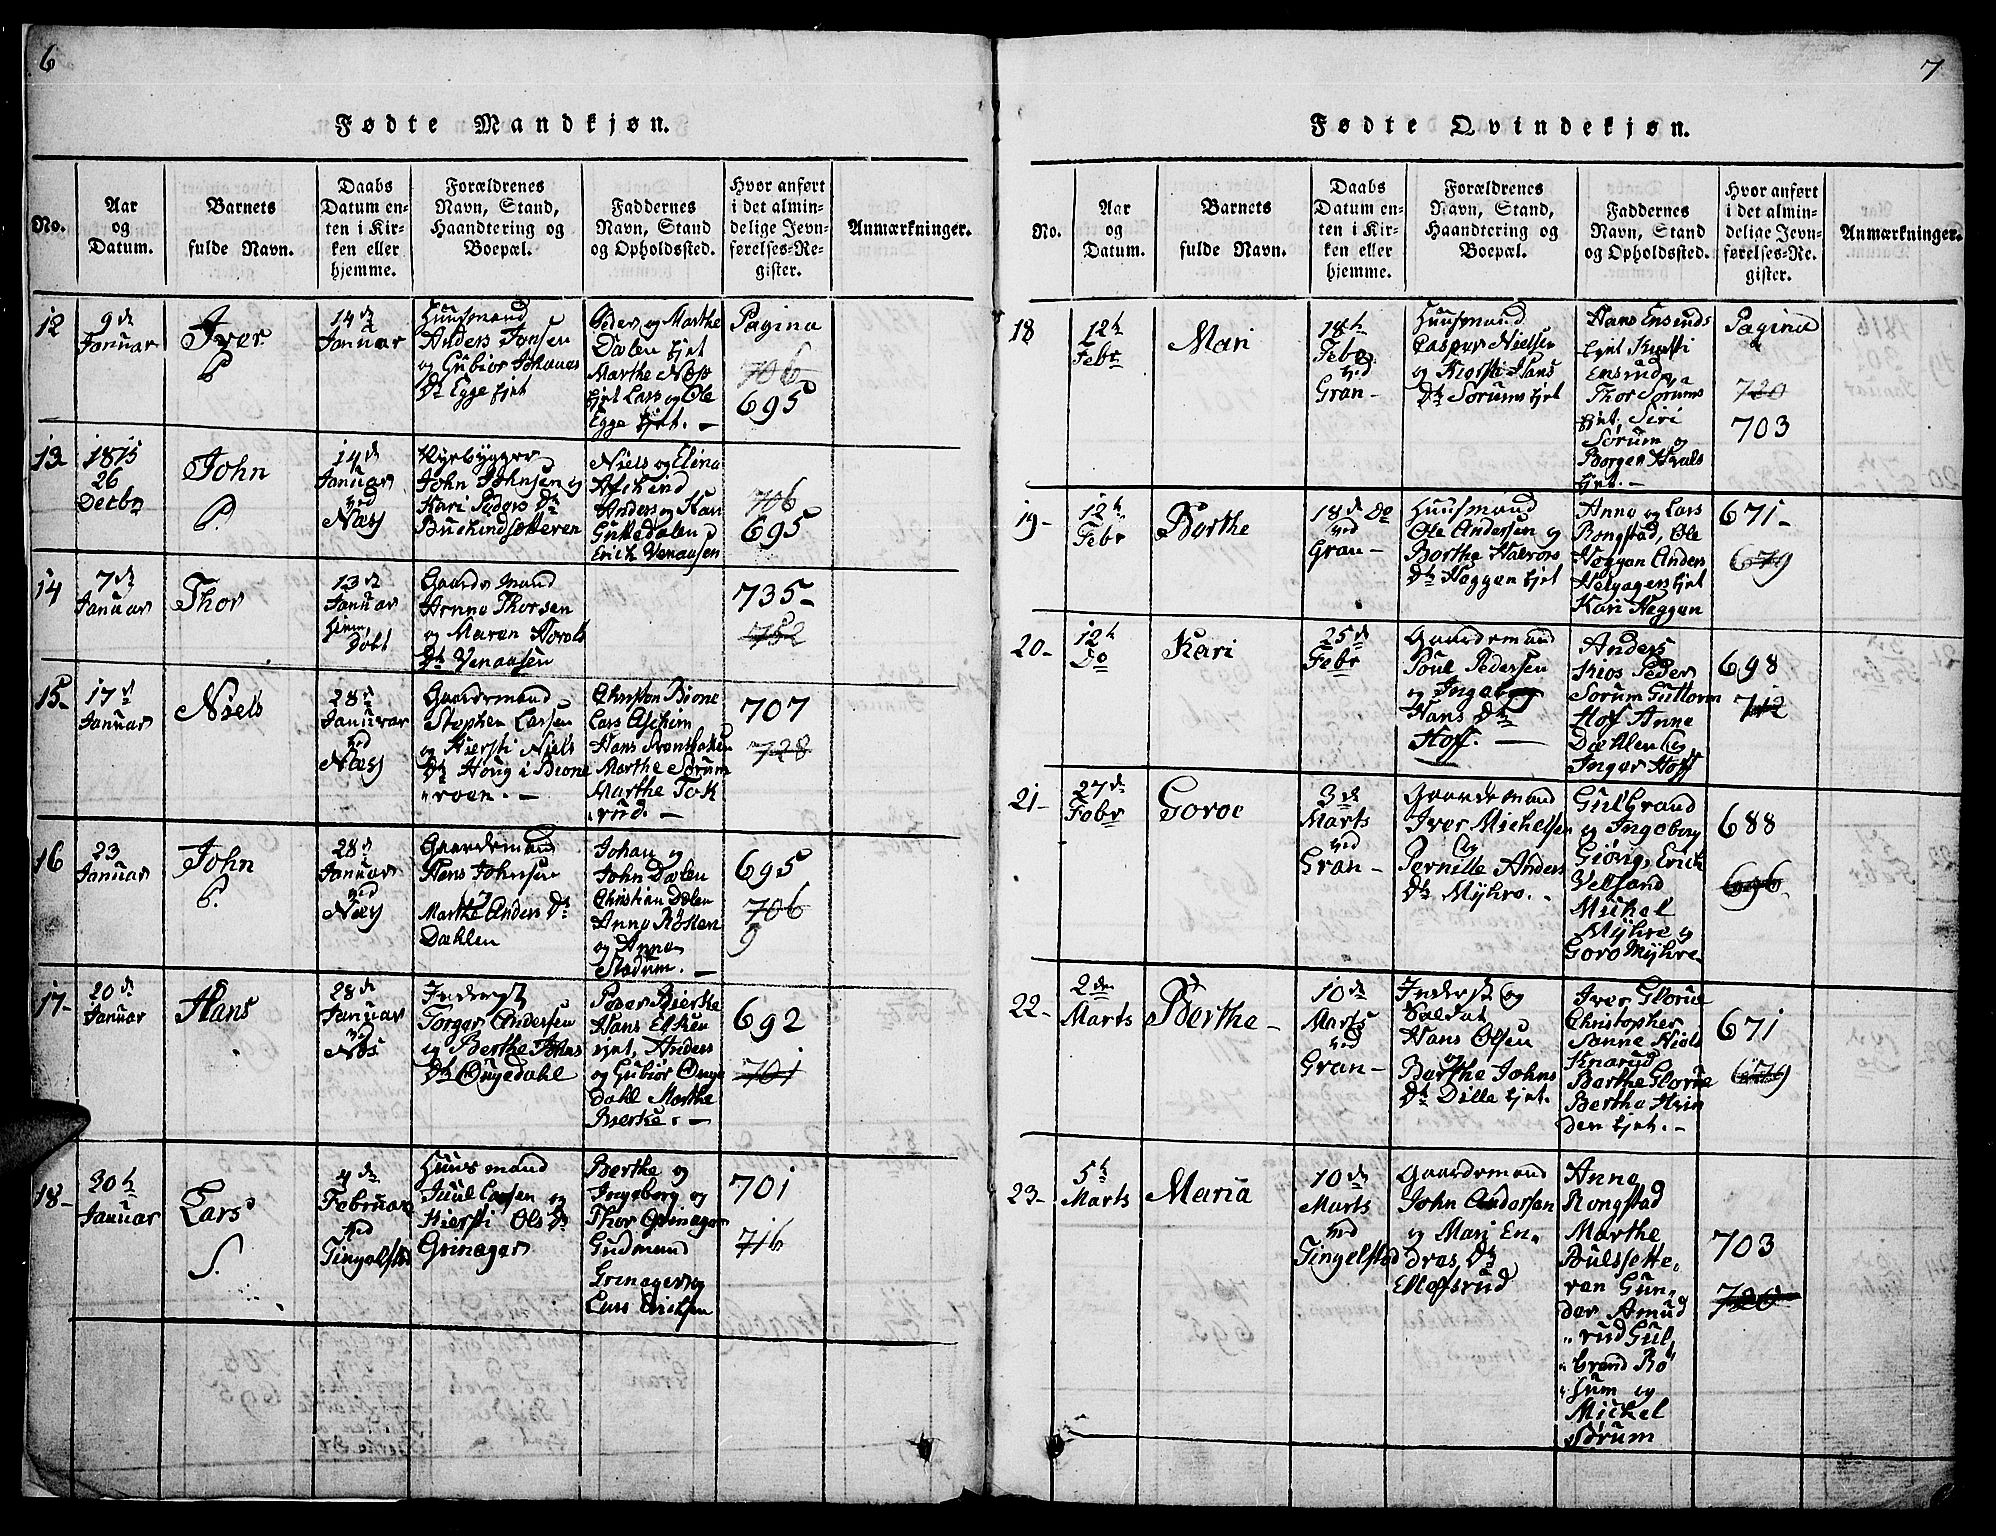 6
Fødte Mandkjøn.
No.
Aar
og
Datum.
Barnets
fulde Navn.
Daabs
Datum en-
ten i Kir-
ken eller
hjemme.
Forældrenes
Navn, Stand,
Haandtering og
Boepæl.
Faddernes
Navn, Stand
og Opholdssted.
Hvor anført
i det almin-
delige Jevn-
førelses-Re-
gister.
Anmærkninger.
12
9de
Januar
Iver
14de
Januar
Huusmand
Anders Jonsen
og Gubiør Johannes
Dtr Egge Ejet
Peder og Marthe
Dalen Ejet
Marthe
Ejet Lars og Ole
Egge Ejet. –
Pagina
706
695
13
1815
26
Decbr
John
14de
Januar
ved
Næs
Nyebygger
John Johnsen og
Kari Peders Dtr
Niels og Elina
Anders og
Gullkedalen
Erick Venaasen
706
695
14
7de
Januar
Thor
13de
Januar
hjem
Døbt
Gaardsmand
Arnne Thorsen
og Maren
Dtr Venaasen
735-
752
15-
17de
Januar
Niels
28de
Januar
ved
Næs
Gaardsmand
Stephen Larsen
og Kiersti Niels
Dtr Houg i Bione
„roen. –
Christen Bione
Lars Aschim
Hans
Marthe Sørum
Marthe Tok
„rud. –
707
728
16
23
Januar
John
28de
Januar
ved
Næs
Gaardsmand
Hans Johnsen
og
Marthe Anders Dtr
Dæhlen
Johan og
John Dælen
Christian Dælen
Anne
og Anne
Stadum. –
695
706
17-
20de
Januar
Hans
28de
Januar
ved
Næs
Inderst
Torger Andersen
og Berthe Johns
Dtr Ongedahl
Peder Bierke
Hans
ejet, Anders
og Gubiør Onge
Dahl Marthe
Bierke. –
692
701
18-
30te
Januar
Lars
4de
Februar
ved
Tingelstad
Huusmand
Juul Larsen og
Kiersti Ols Dtr
Grinager
Berthe og
Ingeborg og
Thor Grinager
Gudmund
Grinager og
Lars Erichsen
701
716
7
Fødte Qvindekjøn.
No.
Aar
og
Datum.
Barnets
fulde Navn.
Daabs
Datum en-
ten i Kir-
ken eller
hjemme.
Forældrenes
Navn, Stand,
Haandtering og
Boepæl.
Faddernes
Navn, Stand
og Opholdssted.
Hvor anført
i det almin-
delige Jevn-
førelses-Re-
gister.
Anmærkninger.
18
12te
Febr
Mari
18de
Febr
ved
Gran –
Huusmand
Casper Nielsen
og Kiersti Hans
Dtr Sørums Ejet
Hans Ensruds
Ejet Kiersti
Ensrud
Thor Sørums
Ejet, Siri
Sørum og
Børgen Hvals
Ejet. –
Pagina
720
703
19-
12te
Febr
Berthe
18de Do
ved
Gran –
Huusmand
Ole Andersen og
Berthe Halvors
Dtr Heggen Ejet
Anne og Lars
Rongstad, Ole
Heggen Anders
Helgagers Ejet
Kari Heggen
671-
679
20-
12te
Do
Kari
25de
Febr
Gaardsmand
Poul Pedersen
og Ingeborg
Hans Dtr
Hoff. –
Anders
Kios Peder
Sørum Guttorm
Hof Anne
Dæhlen og
Inger Hoff
698
712
21-
27de
Febr
Goroe
3de
Marts
ved
Gran –
Gaardsmand
Iver Michelsen
og
Pernille Anders
Dtr Myhre. –
Gulbrand
og Ingeborg
Giøng, Erick
Velsand
Michel
Myhre og
Goro Myhre
688
696
22-
2den
Marts
Berthe –
10de
Marts
ved
Gran –
Inderst og
Soldat
Hans Olsen
og
Berthe Johns
Dtr Dille Ejet.
Iver Glorue
Christopher
Sanne Niels
Knarud
Berthe Glorue
Berthe Hvin
den Ejet. –
671
679
23-
5te
Marts
Maria
10de
Marts
ved
Tingelstad
Gaardsmand
John Andersen
og Mari En-
dres Dtr
Ellefsrud
Anne
Rongstad
Marthe
Bulssette,
ren Gun,
der Amud
„rud Gul
„brand Rø
„sum og
Michel
Sørum
703
726